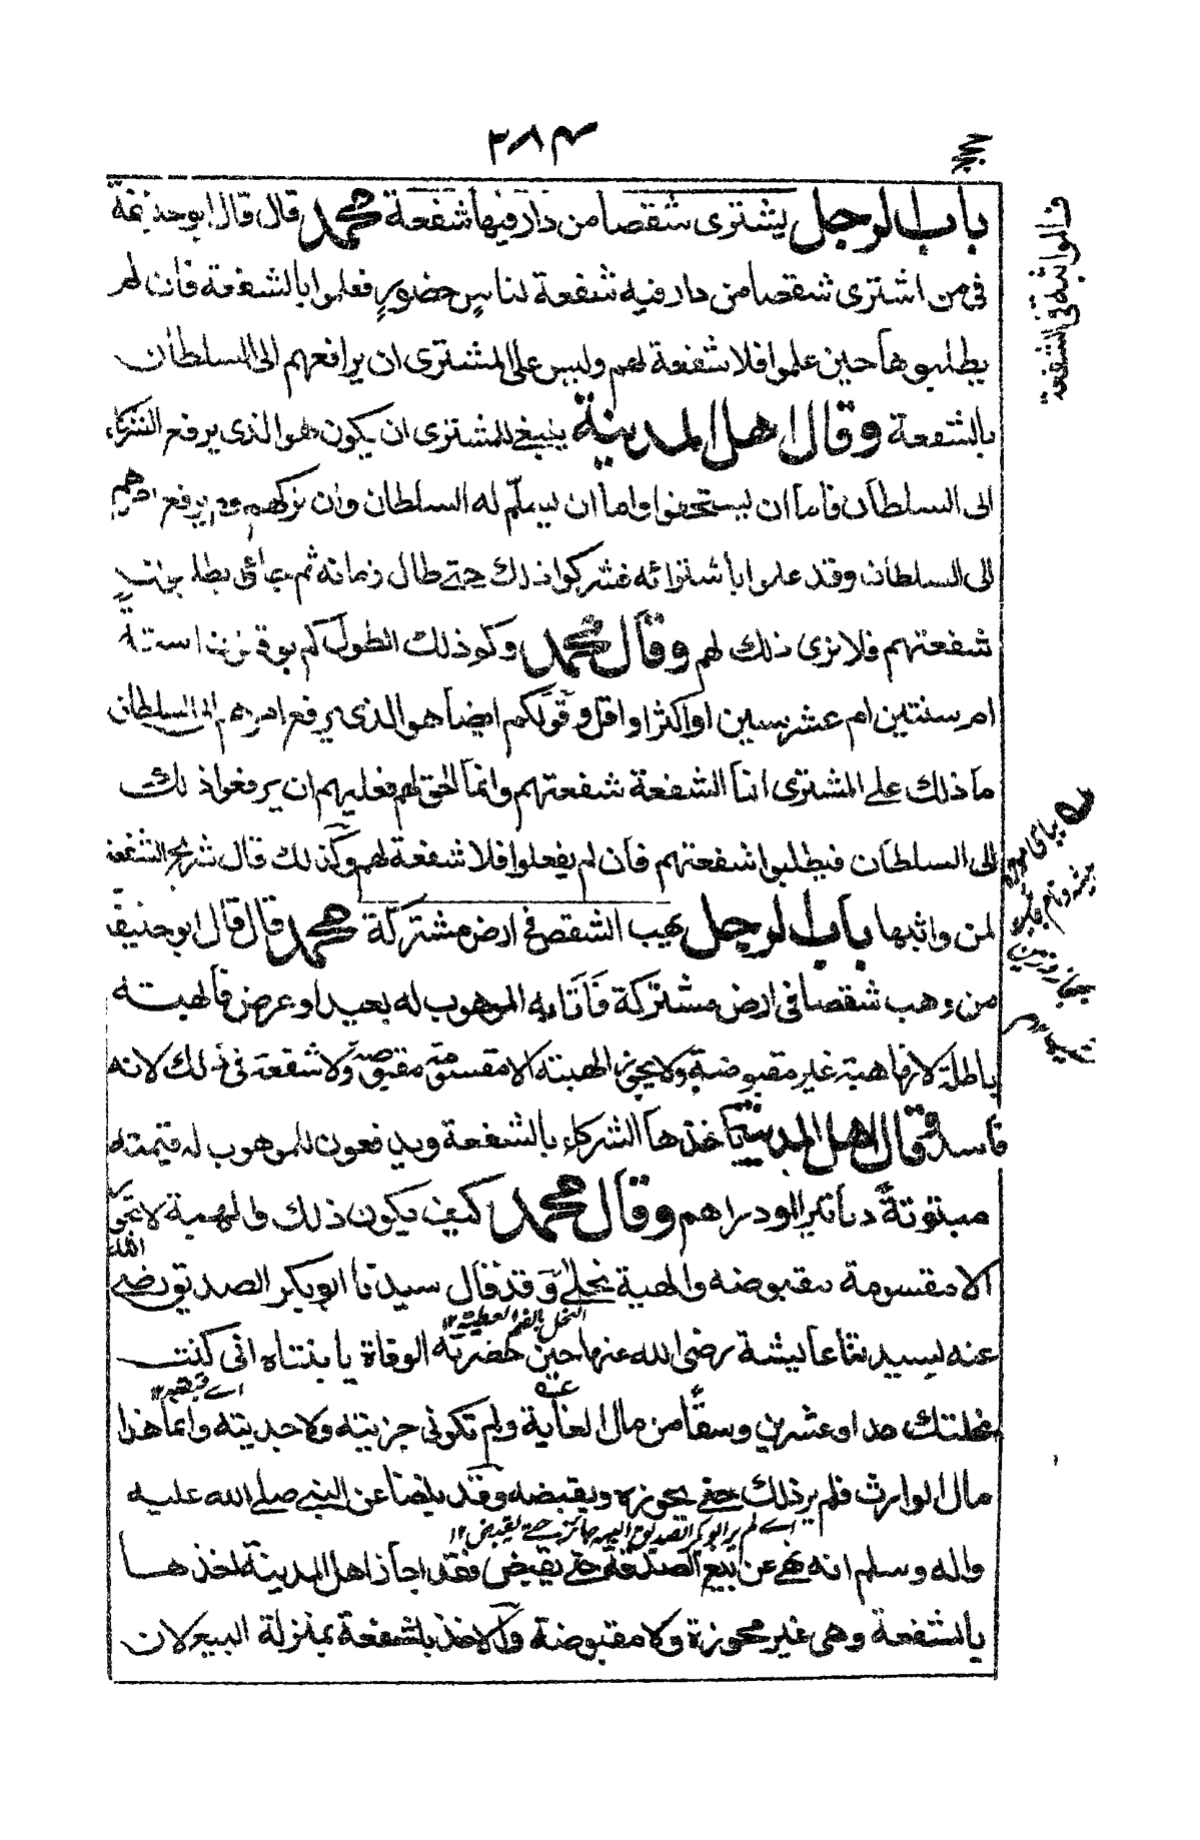 ٢٨٤
باب الرجل يشترى شقصا من دار فيها شفعة محمد قال قال ابو حنيفة
فى من اشترى شقصا من دار فيه شفعة لناس حضور فعلموا بالشفعة فان لم
يطلبوها حين علموا فلا شفعة لهم وليس على المشترى ان يرافعهم الى السلطان
بالشفعة وقال اهل المدينة ينبغى للمشترى ان يكون هو الذى يرفع الشركاء
الى السلطان فاما ان يستحقوا واما ان يسلم له السلطان وان تركهم فلم يرفع امرهم
الى السلطان وقد علموا باشترائه فتركوا ذلك حتى طال زمانه ثم جاؤا يطلبون
شفعتهم فلا نرى ذلك لهم وقال محمد وكم ذلك الطول كم يوقت سنة
ام سنتين ام عشر سنين او اكثر او اقل وقولكم ايضا هو الذى يرفع امرهم الى السلطان
ما ذلك على المشترى انما الشفعة شفعتهم وانما الحق لهم فعليهم ان يرفعوا ذلك
الى السلطان فيطلبوا شفعتهم فان لم يفعلوا فلا شفعة لهم وكذلك قال شريح الشفعة
لمن واثبها باب الرجل يهب الشقص فى ارض مشتركة محمد قال قال ابو حنيفة
من وهب شقصا فى ارض مشتركة فاثابه الموهوب له بعبد او عرض فالهبة
باطلة لانها هبة غير مقبوضة ولا يجوز الهبة الا مقسومة مقبوضة ولا شفعة فى ذلك لانه
فاسد وقال اهل المدينة يأخذها الشركاء بالشفعة ويدفعون للموهوب له قيمته
مبتوتة دنانير او دراهم وقال محمد كيف يكون ذلك والهبة لا تجوز
الا مقسومة مقبوضة والهبة نحلى وقد قال سيدنا ابو بكر الصديق رضى الله
عنه لسيدتنا عايشة رضى الله عنها حين حضرته الوفاة يا بنتاه انى كنت
النحل بالضم العطية ١٢
نحلتك جداد عشرين وسقا من مال الغابة ولم تكونى جزيته ولا حديته وانما هذا
اے قبضته ١٢
مال الوارث فلم ير ذلك حتى يحوزه ويقبضه وقد بلغنا عن النبى صلے الله عليه
واله وسلم انه نهى عن بيع الصدقة حتى يقبض فقد اجاز اهل المدينة اخذها
اے لم ير ابو بكر الصديق الهبة جائزة حتى يقبض ١٢
بالشفعة وهى غير محوزة ولا مقبوضة والاخذ بالشفعة بمنزلة البيع لان
فى المواثبة فى الشفعة